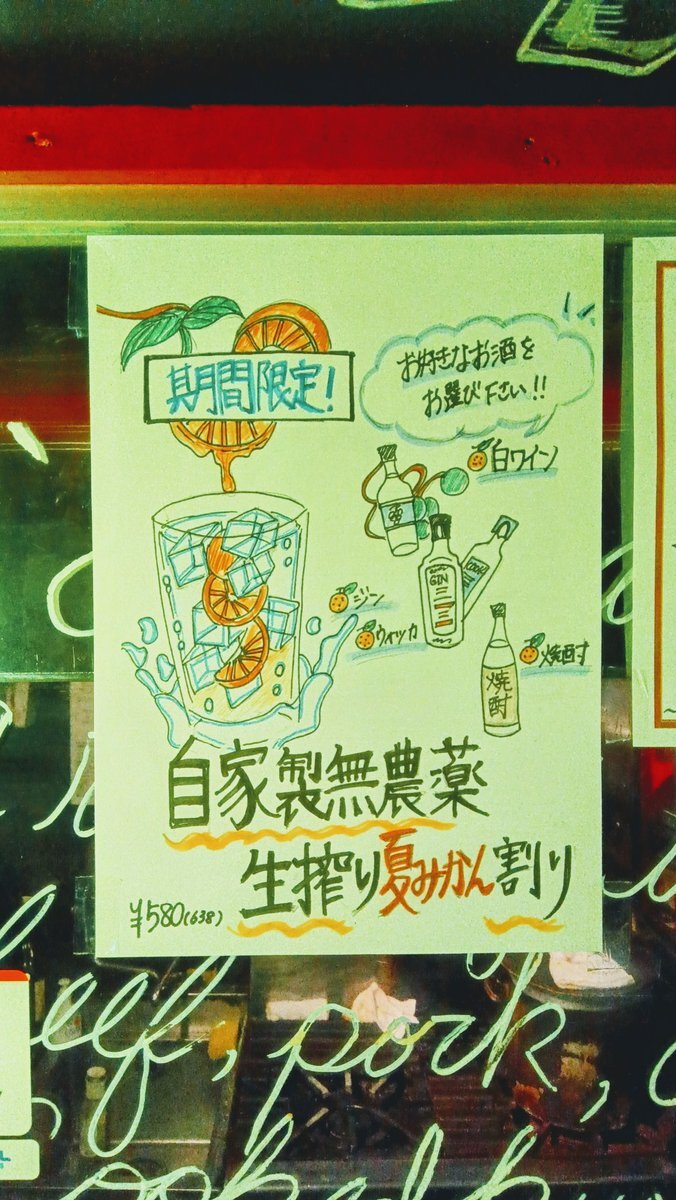 期間限定!
お好きなお酒を
お選び下さい!!
白ワイン
GIN
ジン
ウィッカ
焼酎
焼酎
自家製無農薬
生搾り夏みかん割り
¥580(638)
beef, pork,